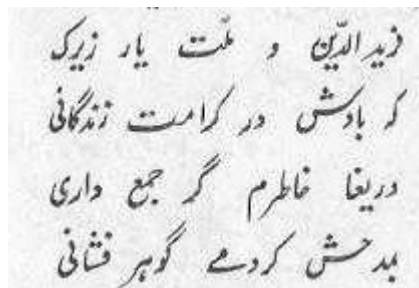 فرید الدّین و ملّت یار زیرک
که بادش در کرامت زندگانی
دریغا خاطرم گر جمع داری
بمدحش کردمے گوهر فشانی